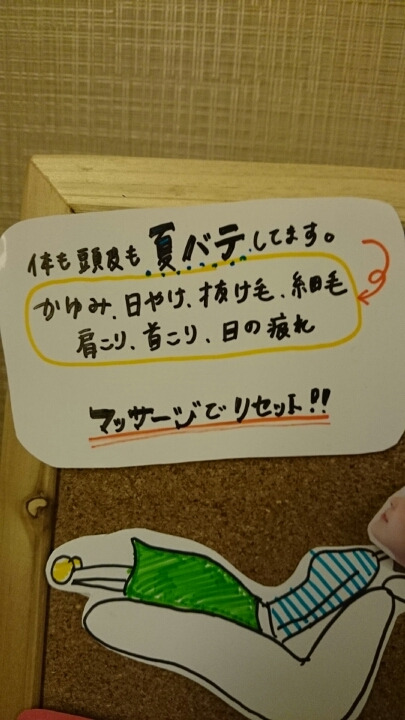 体も頭皮も夏バテしてます。
かゆみ、日やけ、抜け毛、細毛
肩こり、首こり、目の疲れ
マッサージでリセット!!